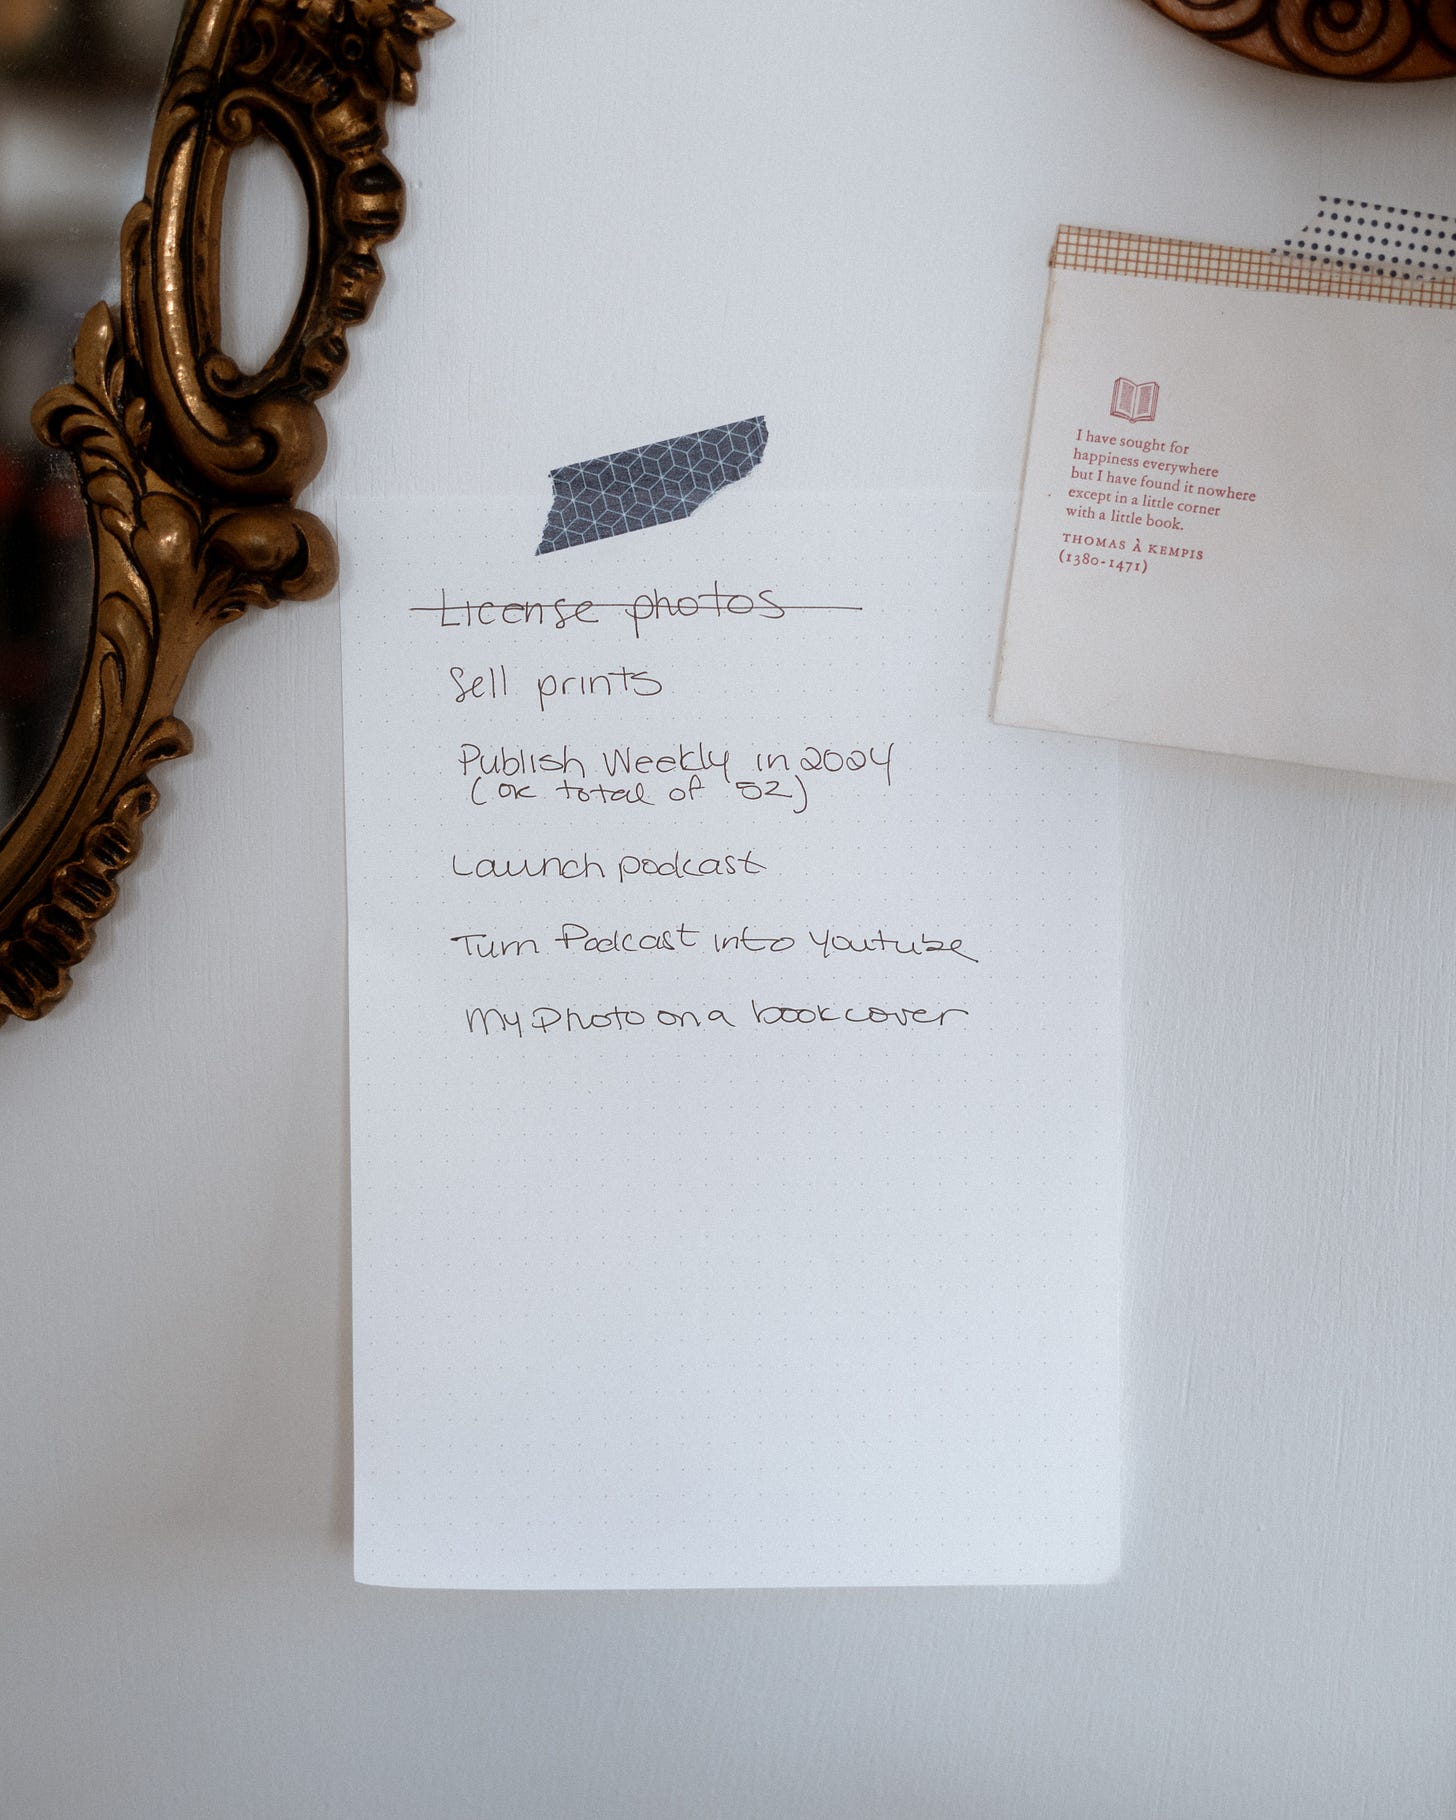 License photos
Sell prints
Publish Weekly in 2024
(or total of 52)
Launch podcast
Turn Podcast into Youtube
My Photo on a book cover
I have sought for
happiness everywhere
but I have found it nowhere
except in a little corner
with a little book.
THOMAS À KEMPIS
(1380-1471)